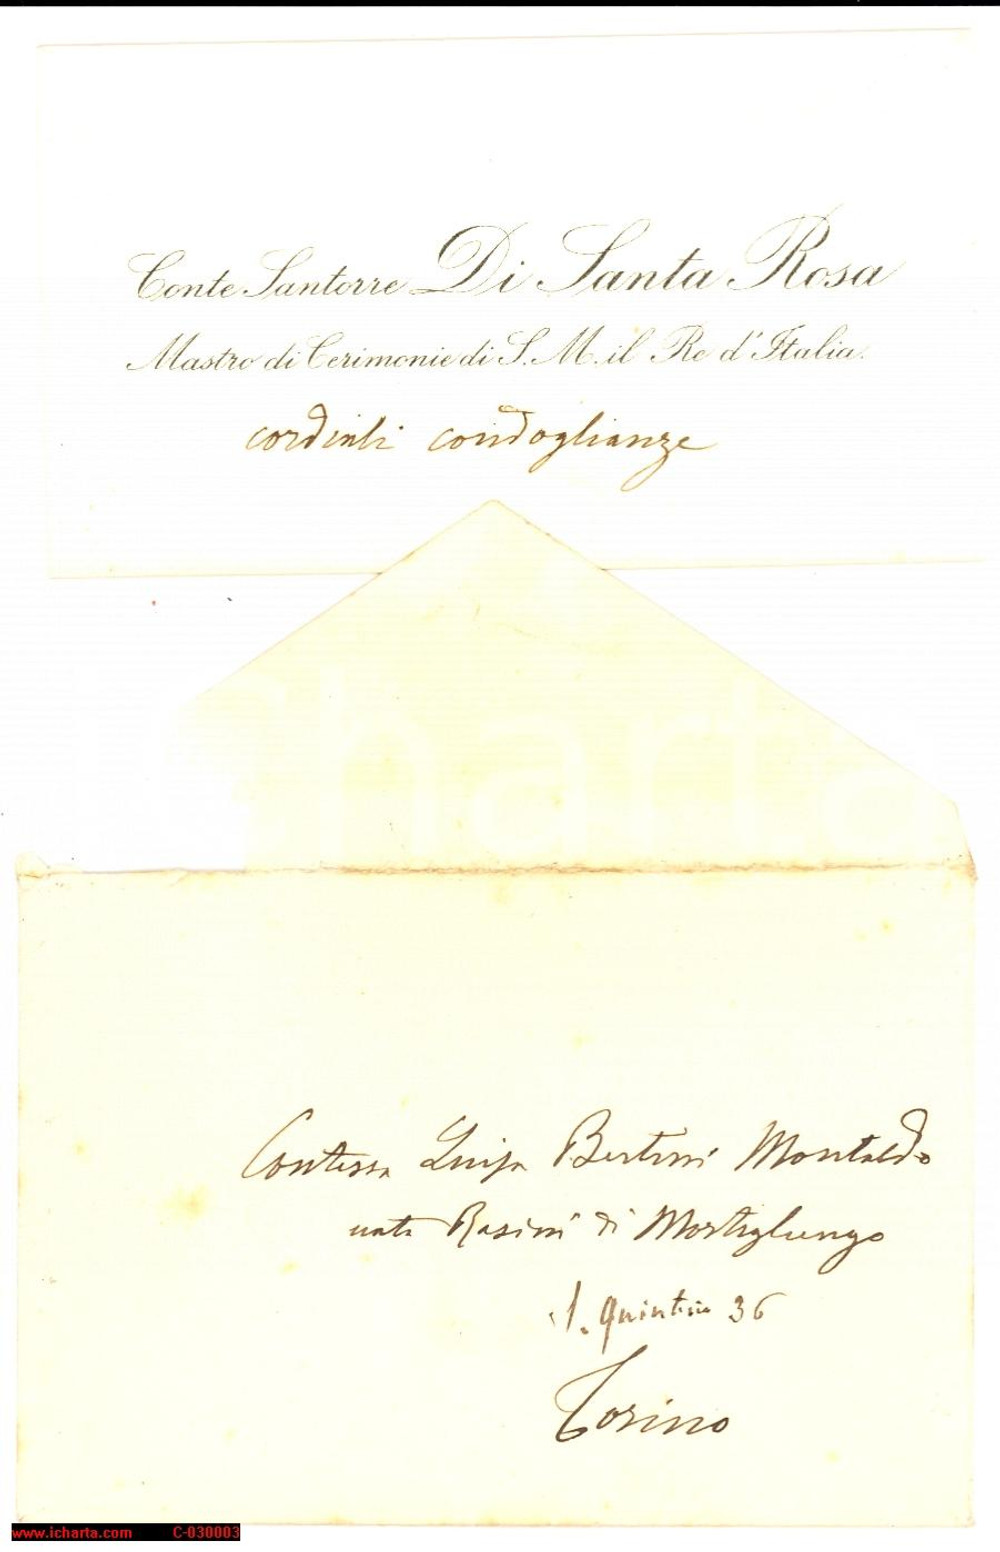 Conte Santorre Di Santa Rosa
Mastro di Cerimonie di S. M. il Re d'Italia.
cordiali condoglianze
icharta
Contessa Luisa Bertini Montaldo
nata Rasini di Mortigliengo
S. Quintino 36
Torino
www.icharta.com C-030003